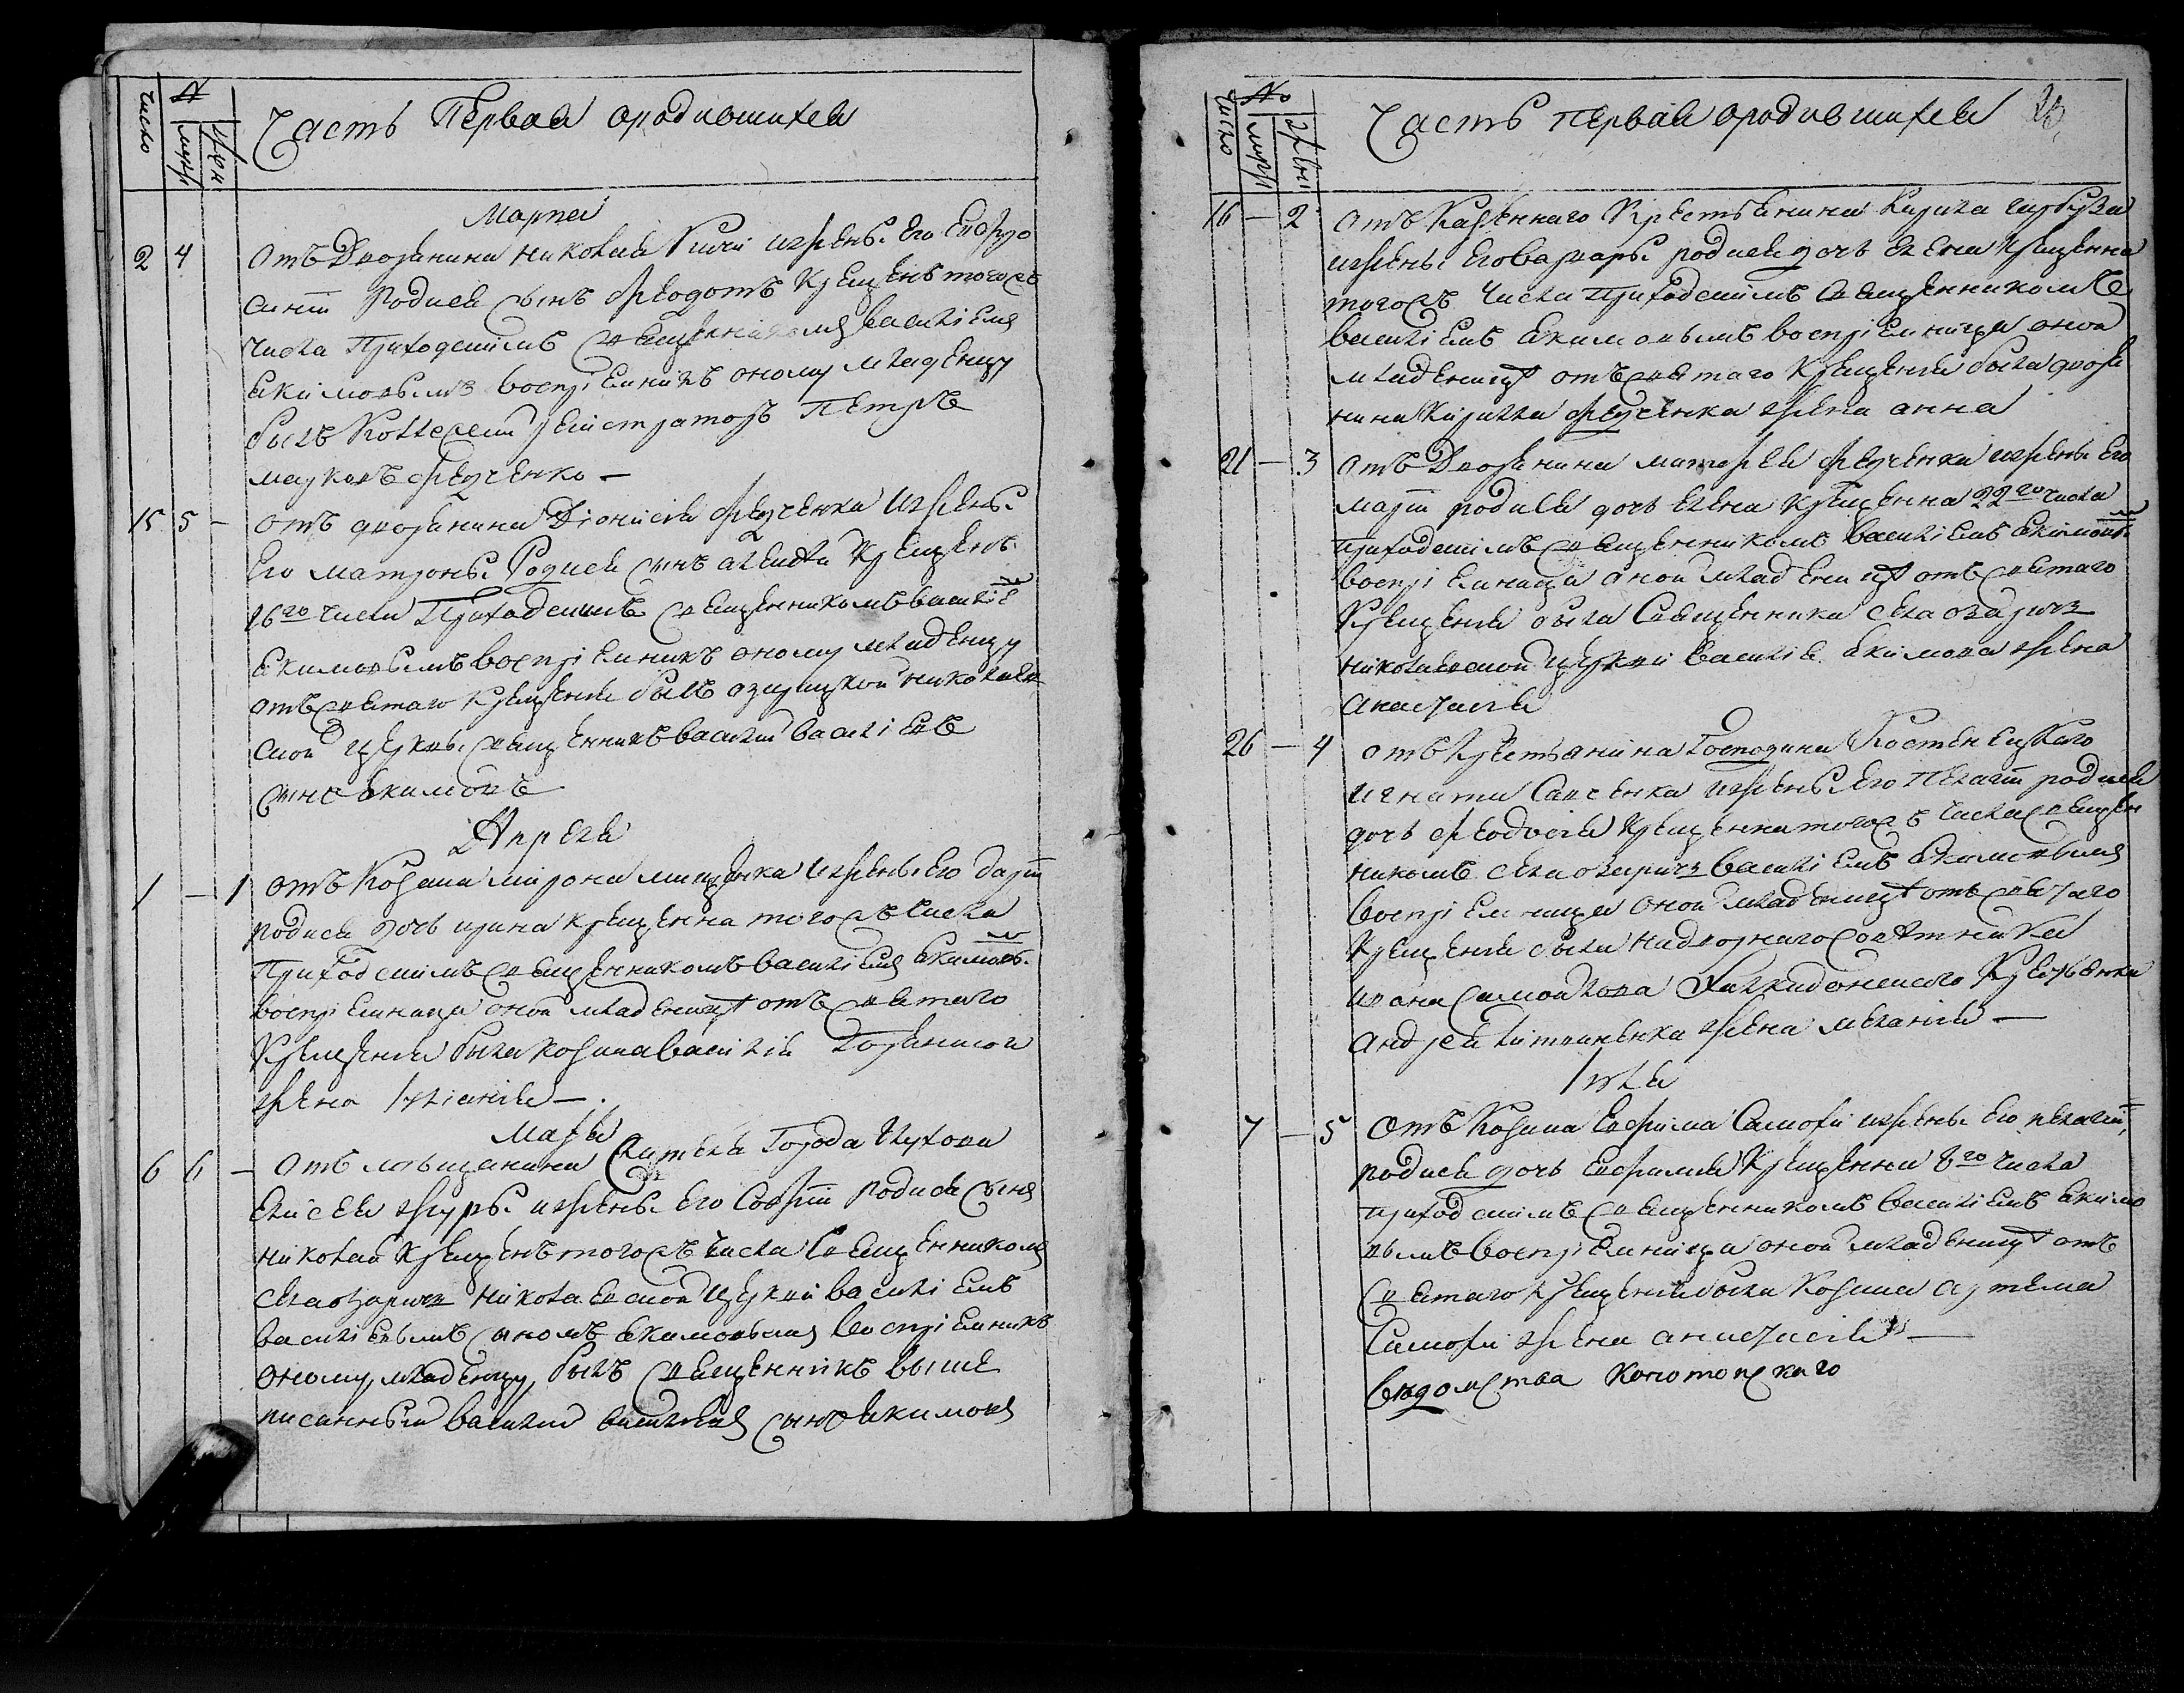 число
№
мужч
женс
Часть Первая ородившихся
Марта
2 4 отъ Дворянина николая изжены его Евфро
синіи Родися сынъ Феодотъ Крещенъ тогожъ
числа Приходскимъ Священникомъ василіемъ
Екимовымъ воспріемникъ оному младенцу
былъ Коллеский регистраторъ Петръ
марковъ Федченко —
15 5 — отъ дворянина Діонисия Федченка изжены
Его матроны Родися сынъ алексѣй Крещенъ
16го числа Приходскимъ Священникомъ василіе
Екимовымъ воспріемникъ оному младенцу
отъ святаго крещения былъ озарицкой николаев
ской церквы священникъ василий василіевъ
сынъ Екимовъ
Апреля
1 — 1 отъ Козака мирона мищенка изжены его даріи
родися дочь ирина крещенна тогожъ числа
Приходскимъ священникомъ василіемъ Екимовы
воспріемница оной младеницѣ отъ святаго
Крещения была козака василія
жена Іуліания —
Маія
6 6 — Отъ мѣщанина жителя Города Глухова
Елисея журы изжены его Софіи родися сынъ
николай крещенъ тогожъ числа священникомъ
села озаричъ николаевской церкви василіемъ
василіевымъ сыномъ Екимовымъ воспріемникъ
оному младенцу былъ священникъ выше
писанный василий василиевъ сынъ Екимовъ
число
№
мужч
женс
Часть первая ородившихся 23
16 — 2 отъ Казеннаго Крестьянина Кирила гарбуза
изжены еговарвары родися дочь елена крещенна
тогожъ числа Приходскимъ священникомъ
василіемъ Екимовымъ воспріемница оной
младеницѣ отъ святаго крещения была дворя
нина Кирилла Федченка жена анна
21 — 3 отъ Дворянина матфея Федченка изжены его
маріи родися дочь елена крещенна 22го числа
приходскимъ священникомъ василіемъ Екимовы
воспріемница оной младеницѣ отъ святаго
Крещения была Священника села озаричъ
николаевской церкви василіе Екимова жена
анастасия
26 — 4 отъ крестянина Господина Костенецкаго
игнатия Савченка изжены его пелагіи родися
дочь феодосия крещенна тогожъ числа священ
никомъ села озаричъ василіемъ Екимовымъ
воспріемница оной младеницѣ отъ святаго
крещения была надворнаго совѣтника
ивана Самойлова Халкидонскаго Крестьянина
андрея жена мелания —
Іюля
7 — 5 Отъ Козака Евфима Самохи изжены его пелагіи,
родися дочь евфимия крещенна 8го числа
приходскимъ священникомъ василіемъ Екимо
вымъ воспріемница оной младеницѣ отъ
святаго крещения была Козака артема
Самохи жена анастасия —
вѣдомства конотопскаго